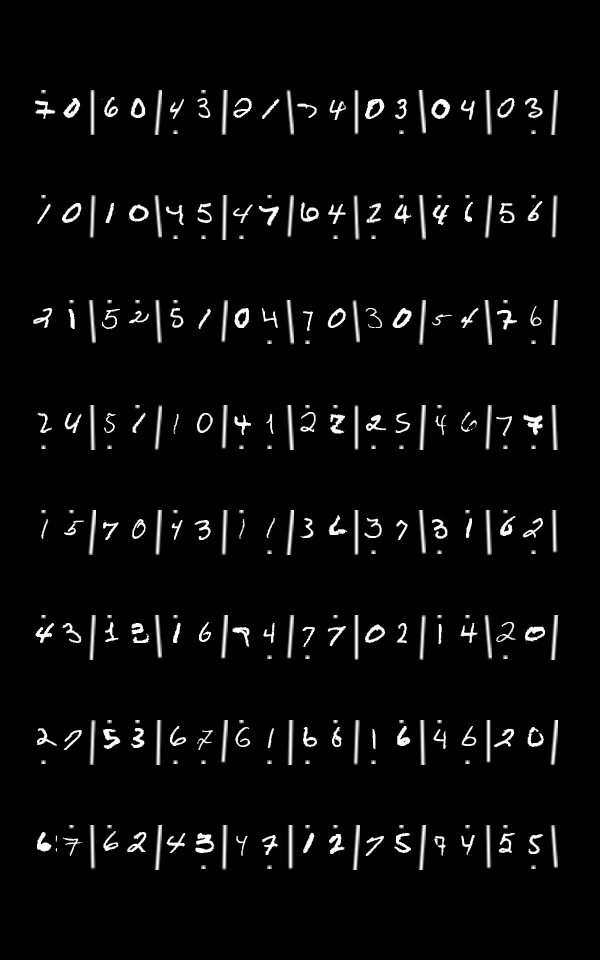 7 0 | 6 0 | 4 3 | 2 1 | 7 4 | 0 3 | 0 4 | 0 3 |
1 0 | 1 0 | 4 5 | 4 7 | 6 4 | 2 4 | 4 6 | 5 6 |
2 1 | 5 2 | 5 1 | 0 4 | 7 0 | 3 0 | 5 4 | 7 6 |
2 4 | 5 1 | 1 0 | 4 1 | 2 2 | 2 5 | 4 6 | 7 7 |
1 5 | 7 0 | 4 3 | 1 1 | 3 6 | 3 7 | 3 1 | 6 2 |
4 3 | 1 3 | 1 6 | 7 4 | 7 7 | 0 2 | 1 4 | 2 0 |
2 7 | 5 3 | 6 7 | 6 1 | 6 6 | 1 6 | 4 6 | 2 0 |
6 7 | 6 2 | 4 3 | 4 7 | 1 2 | 7 5 | 7 4 | 5 5 |